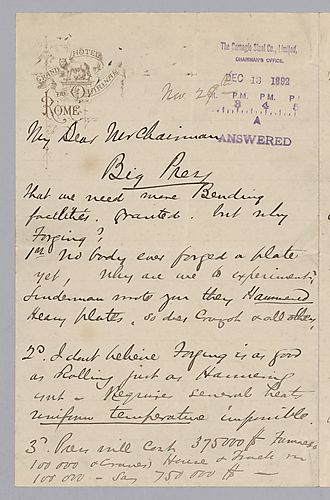 GRAND HÔTEL
DU QUIRINAL
ROME
The Carnegie Steel Co., Limited,
CHAIRMAN'S OFFICE.
DEC 13 1892
M. P.M. P.M. P
3 4 5
A
ANSWERED
Nov 28
My Dear Mr Chairman
Big Press
That we need more Bending
facilities. Granted. but why
Forging?
1st No body ever forged a plate
yet, Why are we to experiment,
Linderman wrote you they Hammered
Heavy plates, so does Creusot & all others
2d. I dont believe Forging is as good
as Rolling just as Hammering
isnt — Requires several heats
uniform temperature impossible.
3d. Press will cost 375000 Furnaces
100 000 & Cranes) House & Track &c
100 000 — Say 750 000 —